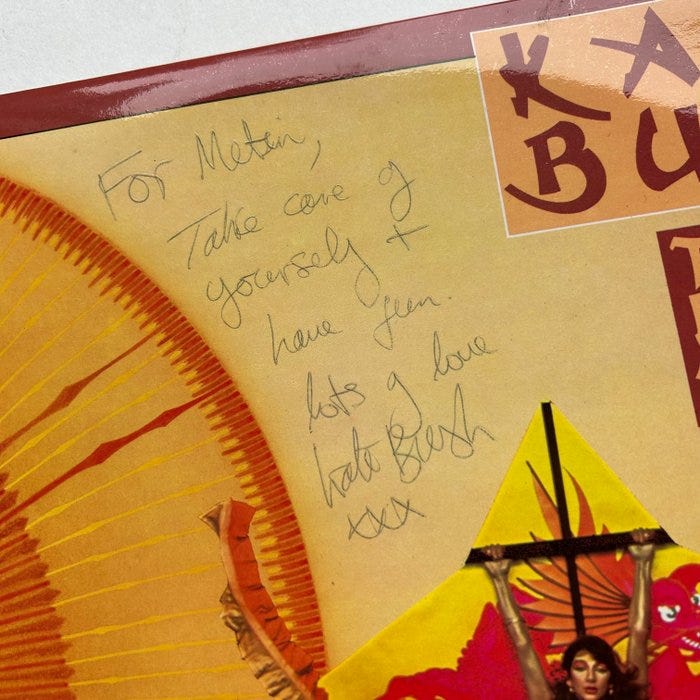 For Metin,
Take care of
yourself +
have fun.
lots of love
Kate Bush
xxx
KA
BU